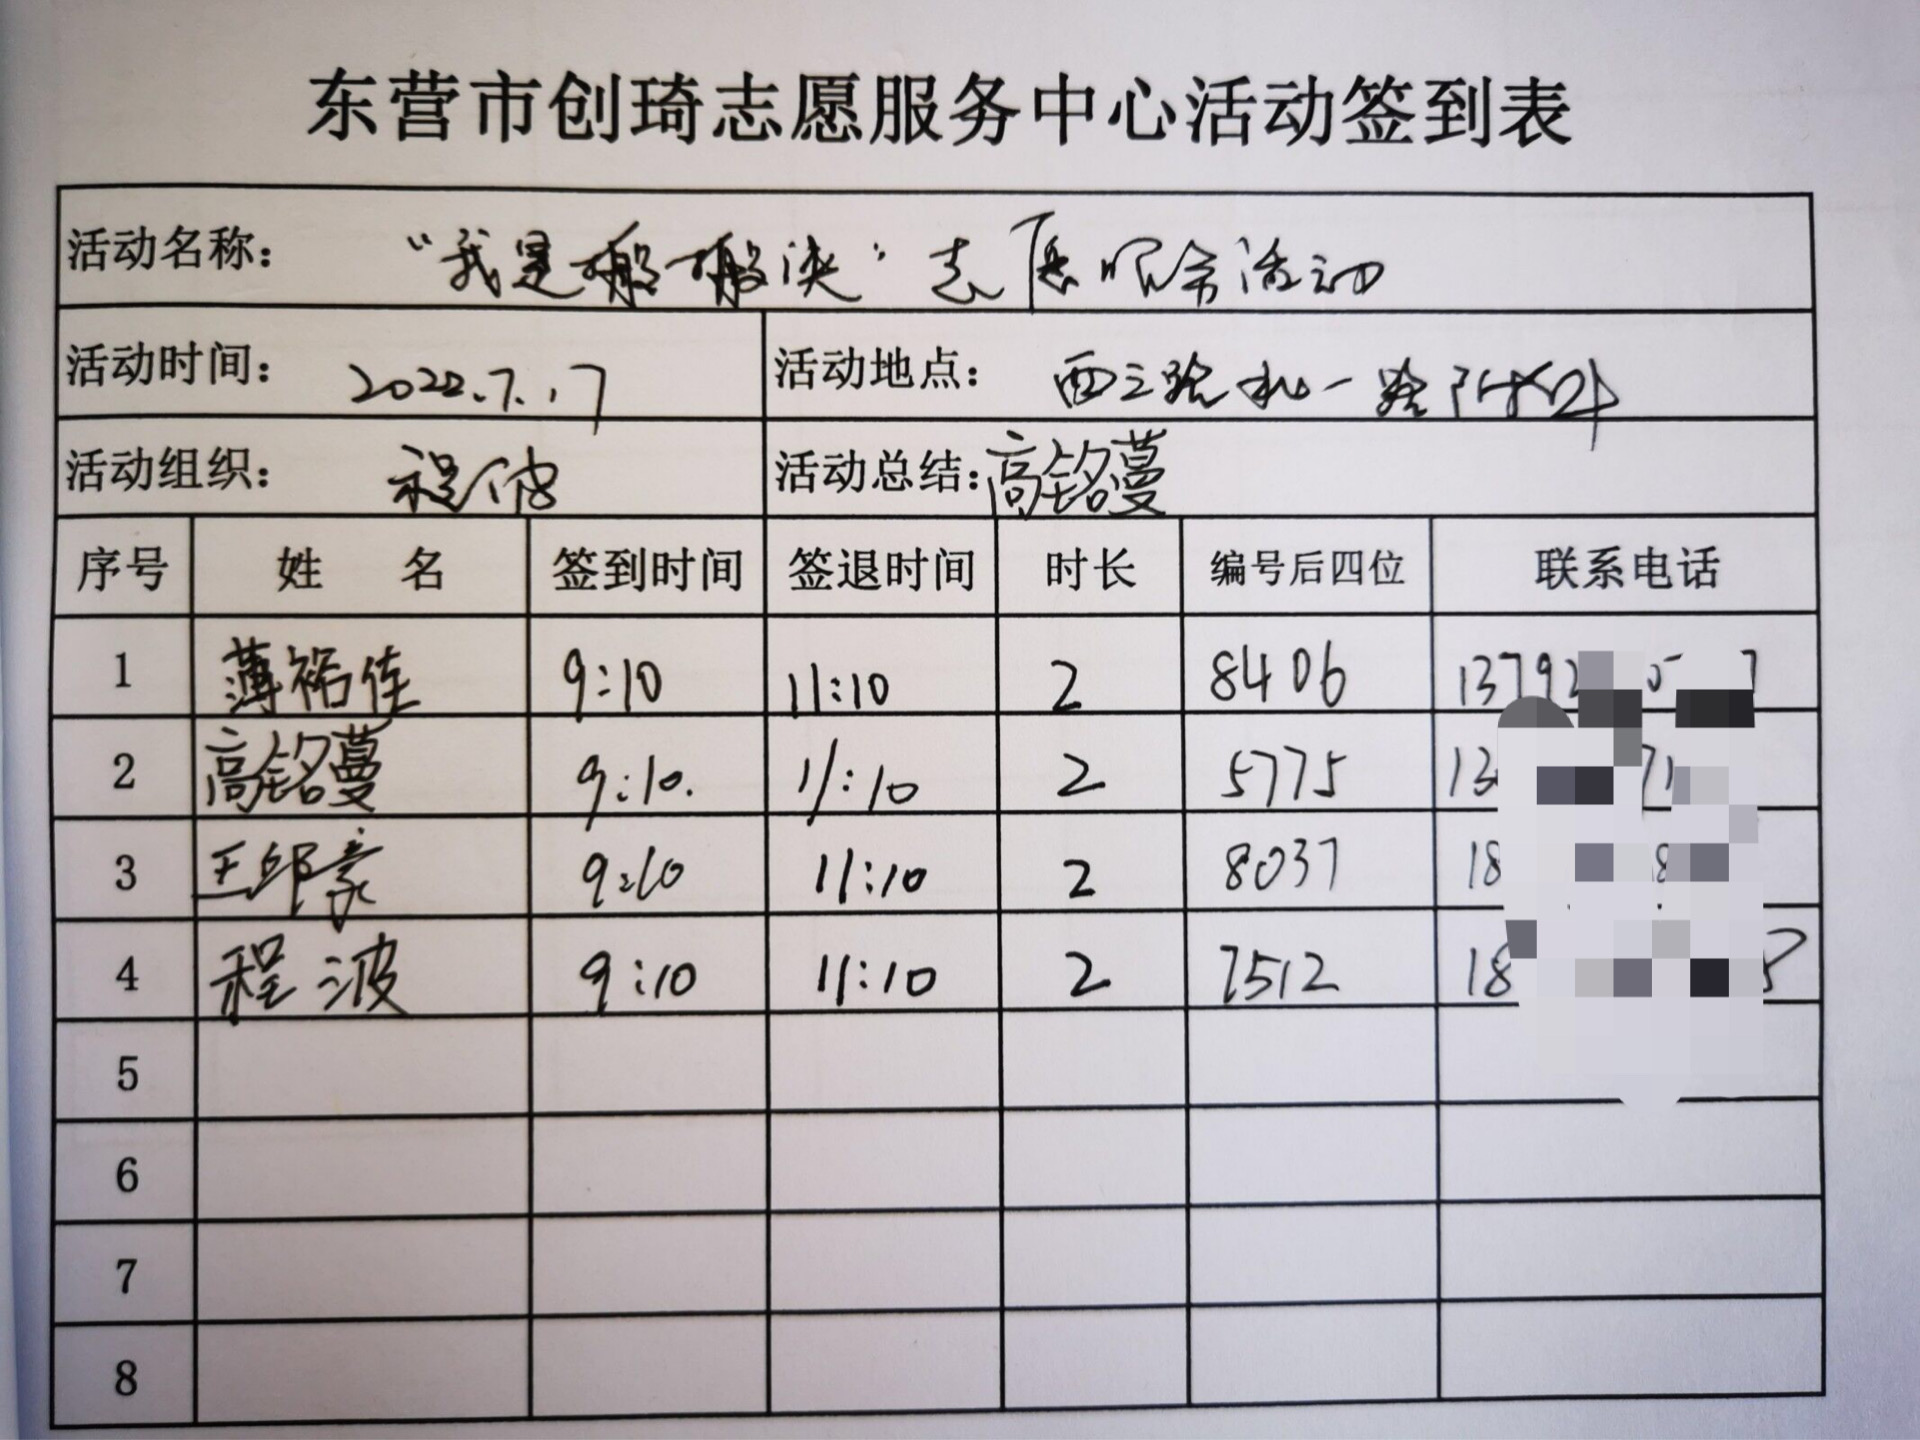 东营市创琦志愿服务中心活动签到表
活动名称： “我是搬搬侠”志愿服务活动
活动时间： 2022.7.17 活动地点： 西三路和一路附近
活动组织： 程波 活动总结：高铭蔓
序号 姓名 签到时间 签退时间 时长 编号后四位 联系电话
1 薄裕佳 9:10 11:10 2 8406 1379
2 高铭蔓 9:10. 11:10 2 5775 13
3 王邹豪 9:10 11:10 2 8037 18
4 程波 9:10 11:10 2 7512 18
5
6
7
8